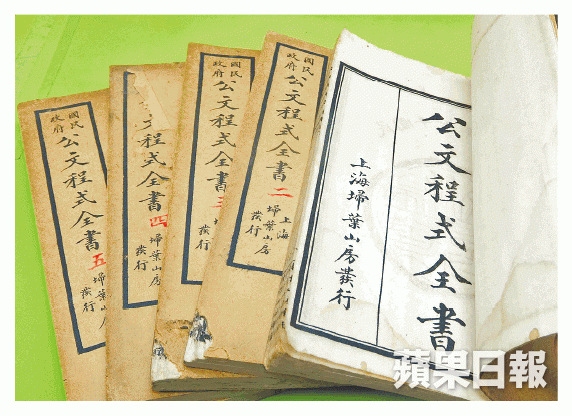 公文程式全書
上海埽葉山房發行
國民
政府
公文程式全書二
上海
埽葉山房
發行
國民
政府
公文程式全書三
埽葉山房
發行
文程式全書四
埽葉山房
發行
國民
政府
公文程式全書五
埽葉山房
發行
蘋果日報